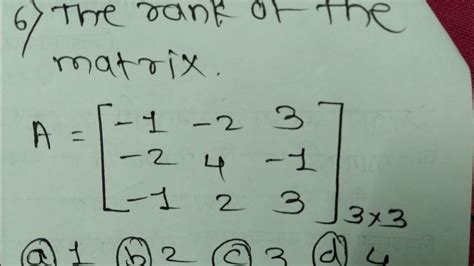 6) The rank of the
matrix.
A = [ -1 -2 3
-2 4 -1
-1 2 3 ] 3×3
(a) 1 (b) 2 (c) 3 (d) 4